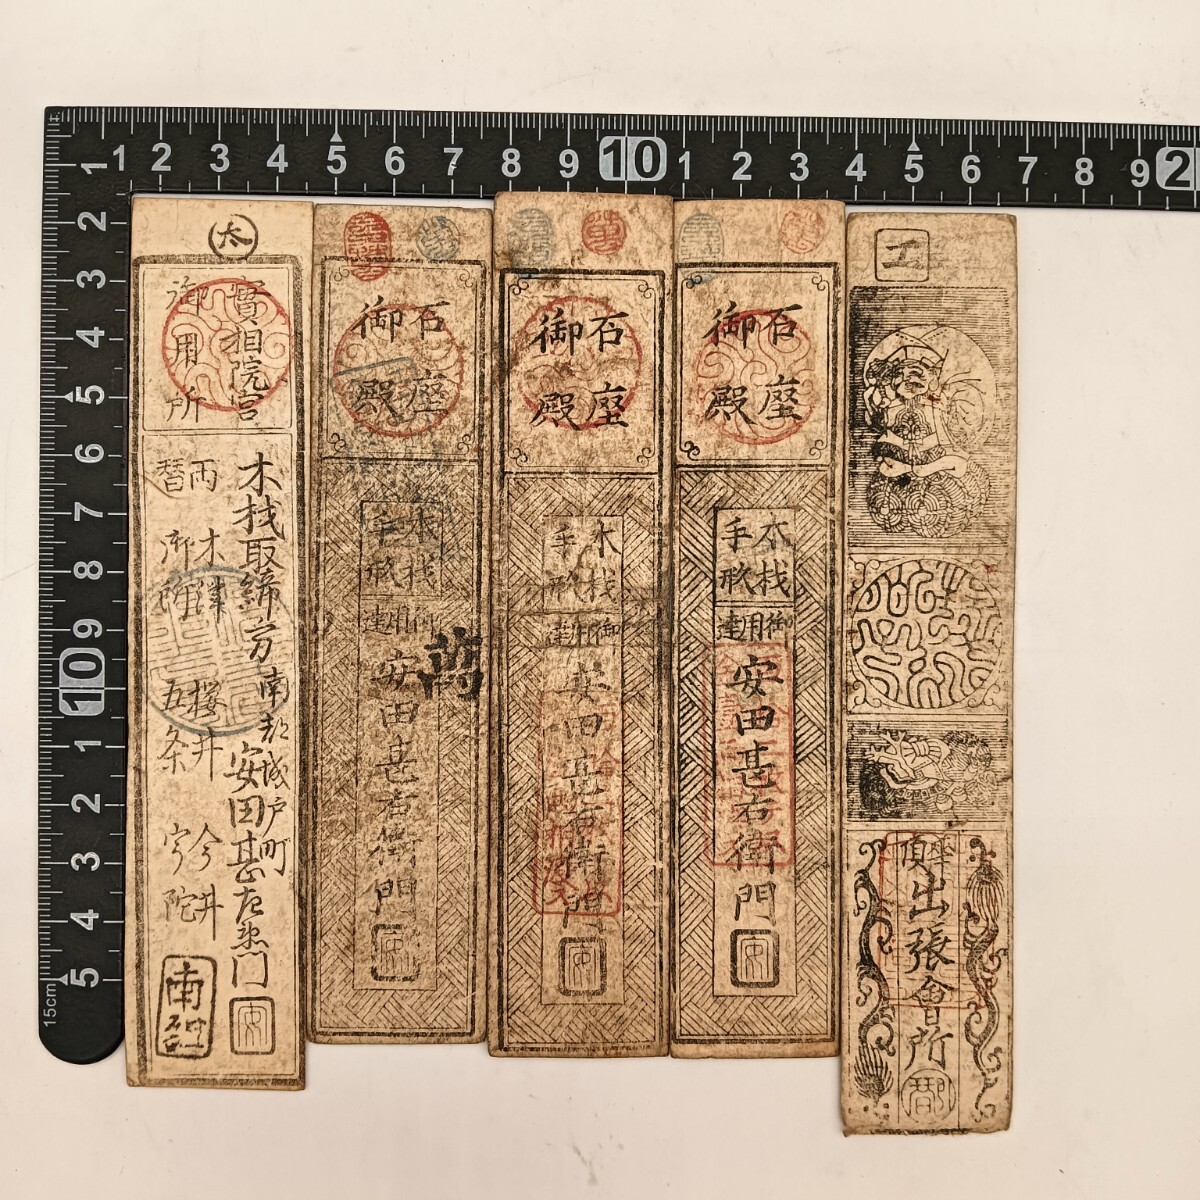 1 2 3 4 5 6 7 8 9 10 1 2 3 4 5 6 7 8 9 2
1
2
3
4
5
6
7
8
9
10
1
2
3
4
5
15cm
太
實相院宮
御用所
木栈取締方
南都城戸町
安田甚左衛門
両替
御所
木津
桜井
今井
五条
宇陀
石座
御殿
木栈
手形
御用達
安田甚右衛門
萬
石座
御殿
木栈
手形
御用達
安田甚右衛門
石座
御殿
木栈
手形
御用達
安田甚右衛門
工
出張會所